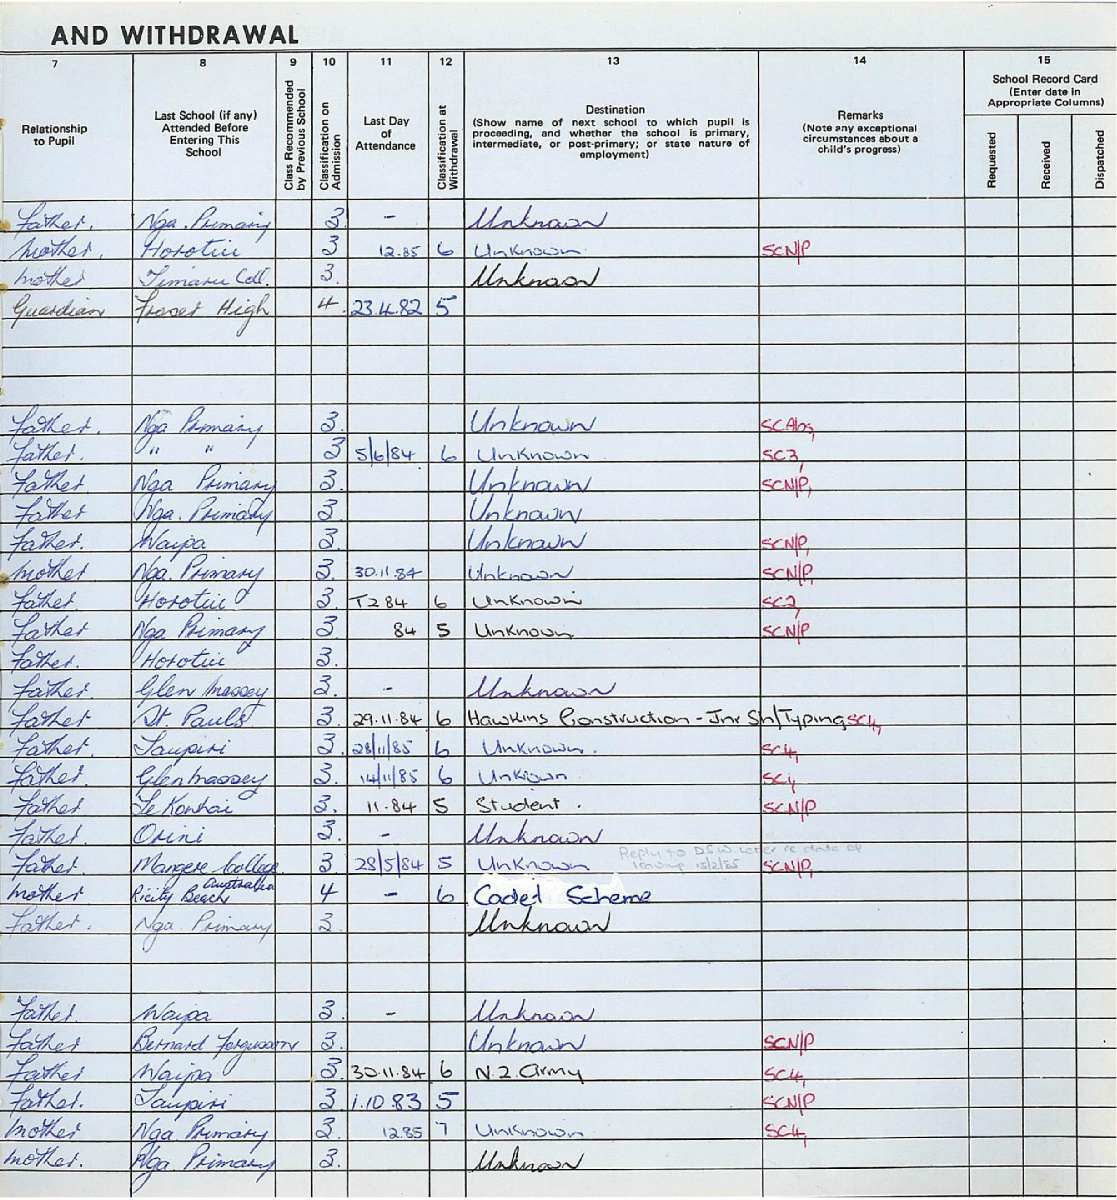 AND WITHDRAWAL
7 8 9 10 11 12 13 14 15
Relationship to Pupil
Last School (if any) Attended Before Entering This School
Class Recommended by Previous School
Classification on Admission
Last Day of Attendance
Classification at Withdrawal
Destination
(Show name of next school to which pupil is proceeding, and whether the school is primary, intermediate, or post-primary; or state nature of employment)
Remarks
(Note any exceptional circumstances about a child's progress)
School Record Card
(Enter date in Appropriate Columns)
Requested
Received
Dispatched
Father. Nga. Primary 3. - Unknown
Mother. Horotiu 3 12.85 6 Unknown SCN/P
Mother Timaru Coll. 3. Unknown
Guardian Fraser High 4. 23.4.82 5
Father. Nga Primary 3. Unknown SCAbs,
Father. " " 3 5/6/84 6 Unknown SC3,
Father Nga Primary 3. Unknown SCN/P,
Father Nga. Primary 3. Unknown
Father. Waipa 3. Unknown SCN/P,
Mother Nga. Primary 3. 30.11.84 Unknown SCN/P,
Father. Horotiu 3. T2 84 6 Unknown SC2,
Father Nga Primary 3. 84 5 Unknown SCN/P
Father. Horotiu 3.
Father Glen Massey 3. - Unknown
Father. St. Pauls 3. 29.11.84 6 Hawkins Construction - Jnr Sh/Typing SC4,
Father Taupiri 3. 28/11/85 6 Unknown. SC4,
Father. Glen Massey 3. 14/11/85 6 Unknown SC1,
Father Te Kowhai 3. 11.84 5 Student. SCN/P
Father. Orini 3. - Unknown
Reply to DSW letter re date of
leaving 15/2/85
Father Mangere College 3. 28/5/84 5 Unknown SCN/P,
Australia
Mother Beach 4 - 6 Caded Scheme
Father. Nga. Primary 3. Unknown
Father. Waipa 3. - Unknown
Father Bernard Fergusson 3. Unknown SCN/P
Father Waipa 3. 30.11.84 6 N.Z. Army SC4,
Father. Taupiri 3 1.10 83 5 SCN/P
Mother Nga Primary 3. 12.85 7 Unknown SC4,
Mother. Nga Primary 3. Unknown